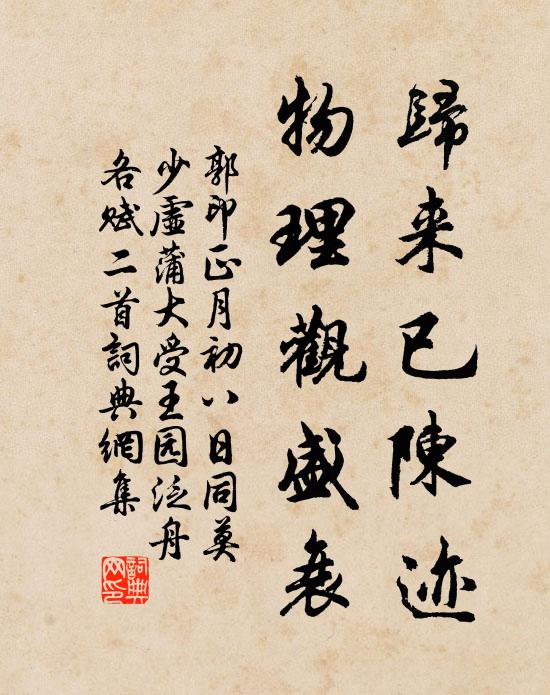 歸来已陳迹
物理觀盛衰
郭印正月初八日同莫
少虛蒲大受王园泛舟
各赋二首詞典網集
詞典网印